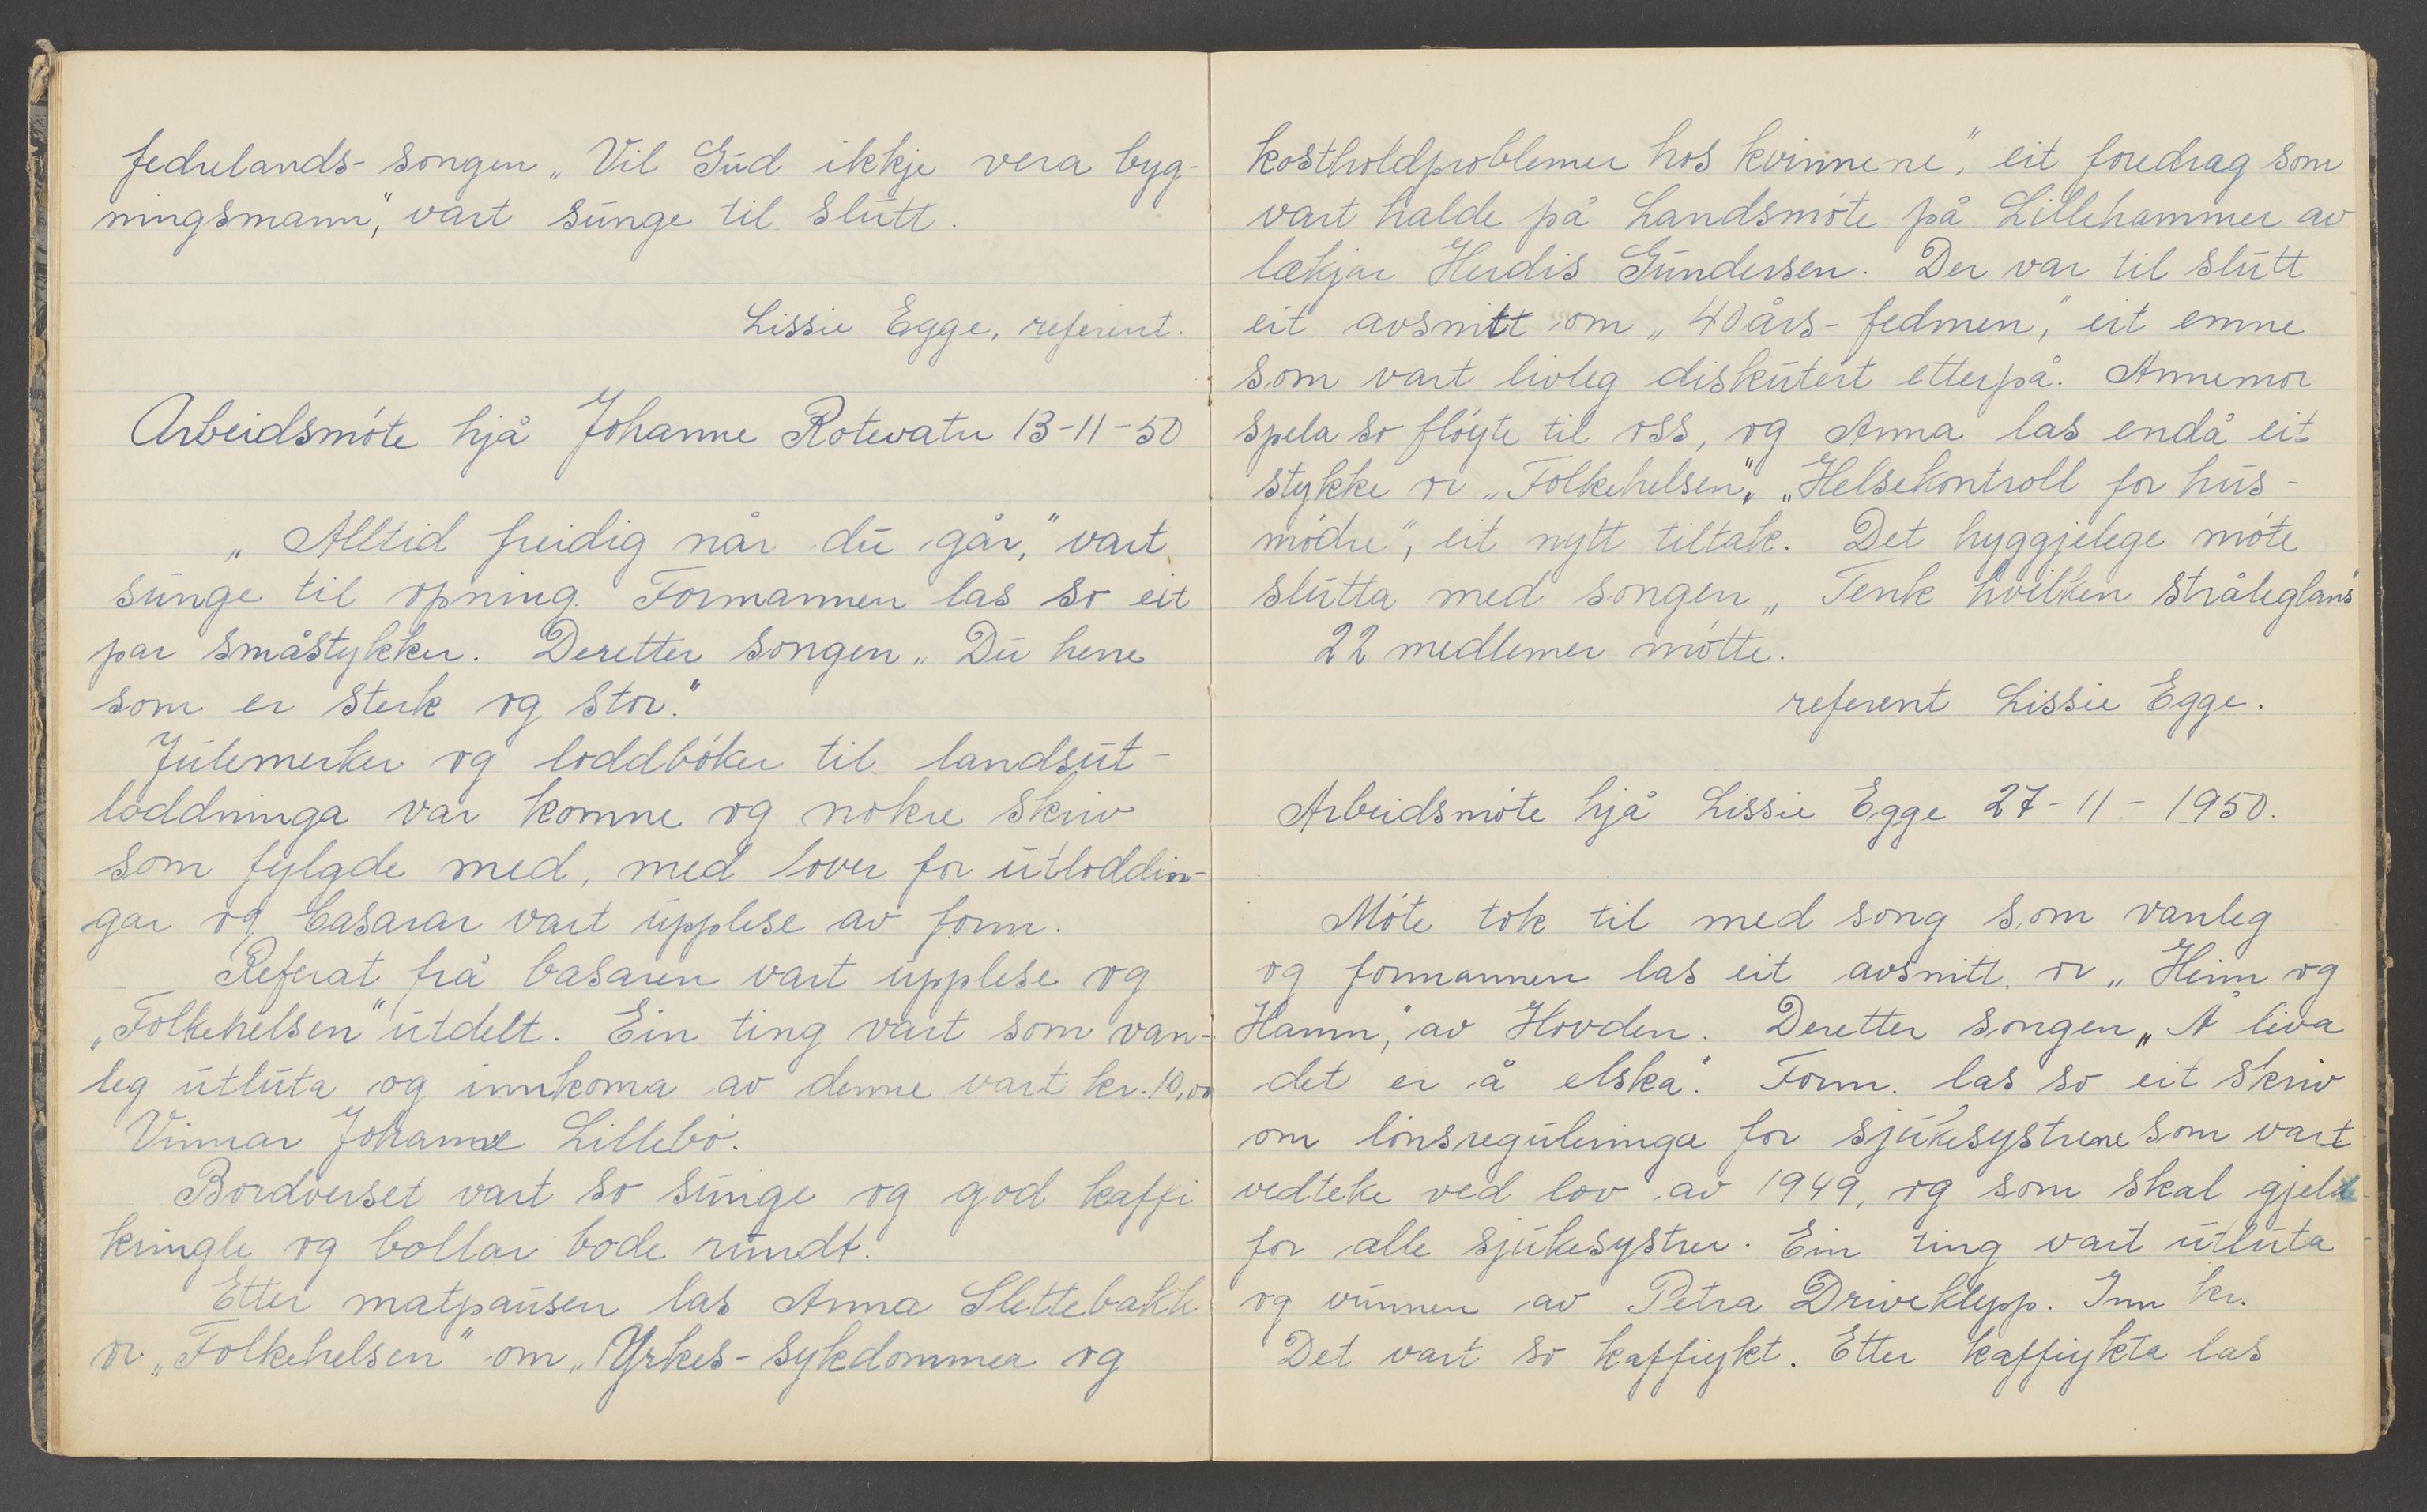 fedrelands-songen „Vil Gud ikkje vera byg-
ningsmann", vart sunge til slutt.
Lissie Egge, referent.
Arbeidsmöte hjå Johanne Rotevatn 13-11-50
„Alltid freidig når du går," vart
sunge til opning. Formannen las so eit
par småstykker. Deretter songen „Du herre
som er sterk og stor."
Julemerker og loddböker til landsut-
loddninga var komne og nokre skriv
som fylgde med, med lover for utloddin-
gar og basarar vart upplese av form.
Referat frå basaren vart upplese og
„Folkehelsen" utdelt. Ein ting vart som van-
leg utluta og innkoma av denne vart kr. 10,00
Vinnar Johanne Lillebö.
Bordverset vart so sunge og god kaffi
kringle og bollar bode rundt.
Etter matpausen las Anna Slettebakk
or „Folkehelsen" om „Yrkes-sykdommer og
kostholdproblemer hos kvinnene", eit foredrag som
vart halde på Landsmöte på Lillehammer av
lækjar Herdis Gundersen. Der var til slutt
eit avsnitt om „40 års-fedmen," eit emne
som vart livleg diskutert etterpå. Annemor
spela so flöyte til oss, og Anna las endå eit
stykke or „Folkehelsen", „Helsekontroll for hus-
mödre", eit nytt tiltak. Det hyggjelege möte
slutta med songen „Tenk hvilken stråleglans"
22 medlemer mötte.
referent Lissie Egge.
Arbeidsmöte hjå Lissie Egge 27-11-1950.
Möte tok til med song som vanleg
og formannen las eit avsnitt or „Heim og
Hamn," av Hovden. Deretter songen „Å liva
det er å elska". Form. las so eit skriv
om lönsreguleringa for sjukesystrene som vart
vedteke ved lov av 1949, og som skal gjelde
for alle sjukesystrer. Ein ting vart utluta
og vunnen av Petra Driveklepp. Inn kr.
Det vart so kaffiykt. Etter kaffiykta las